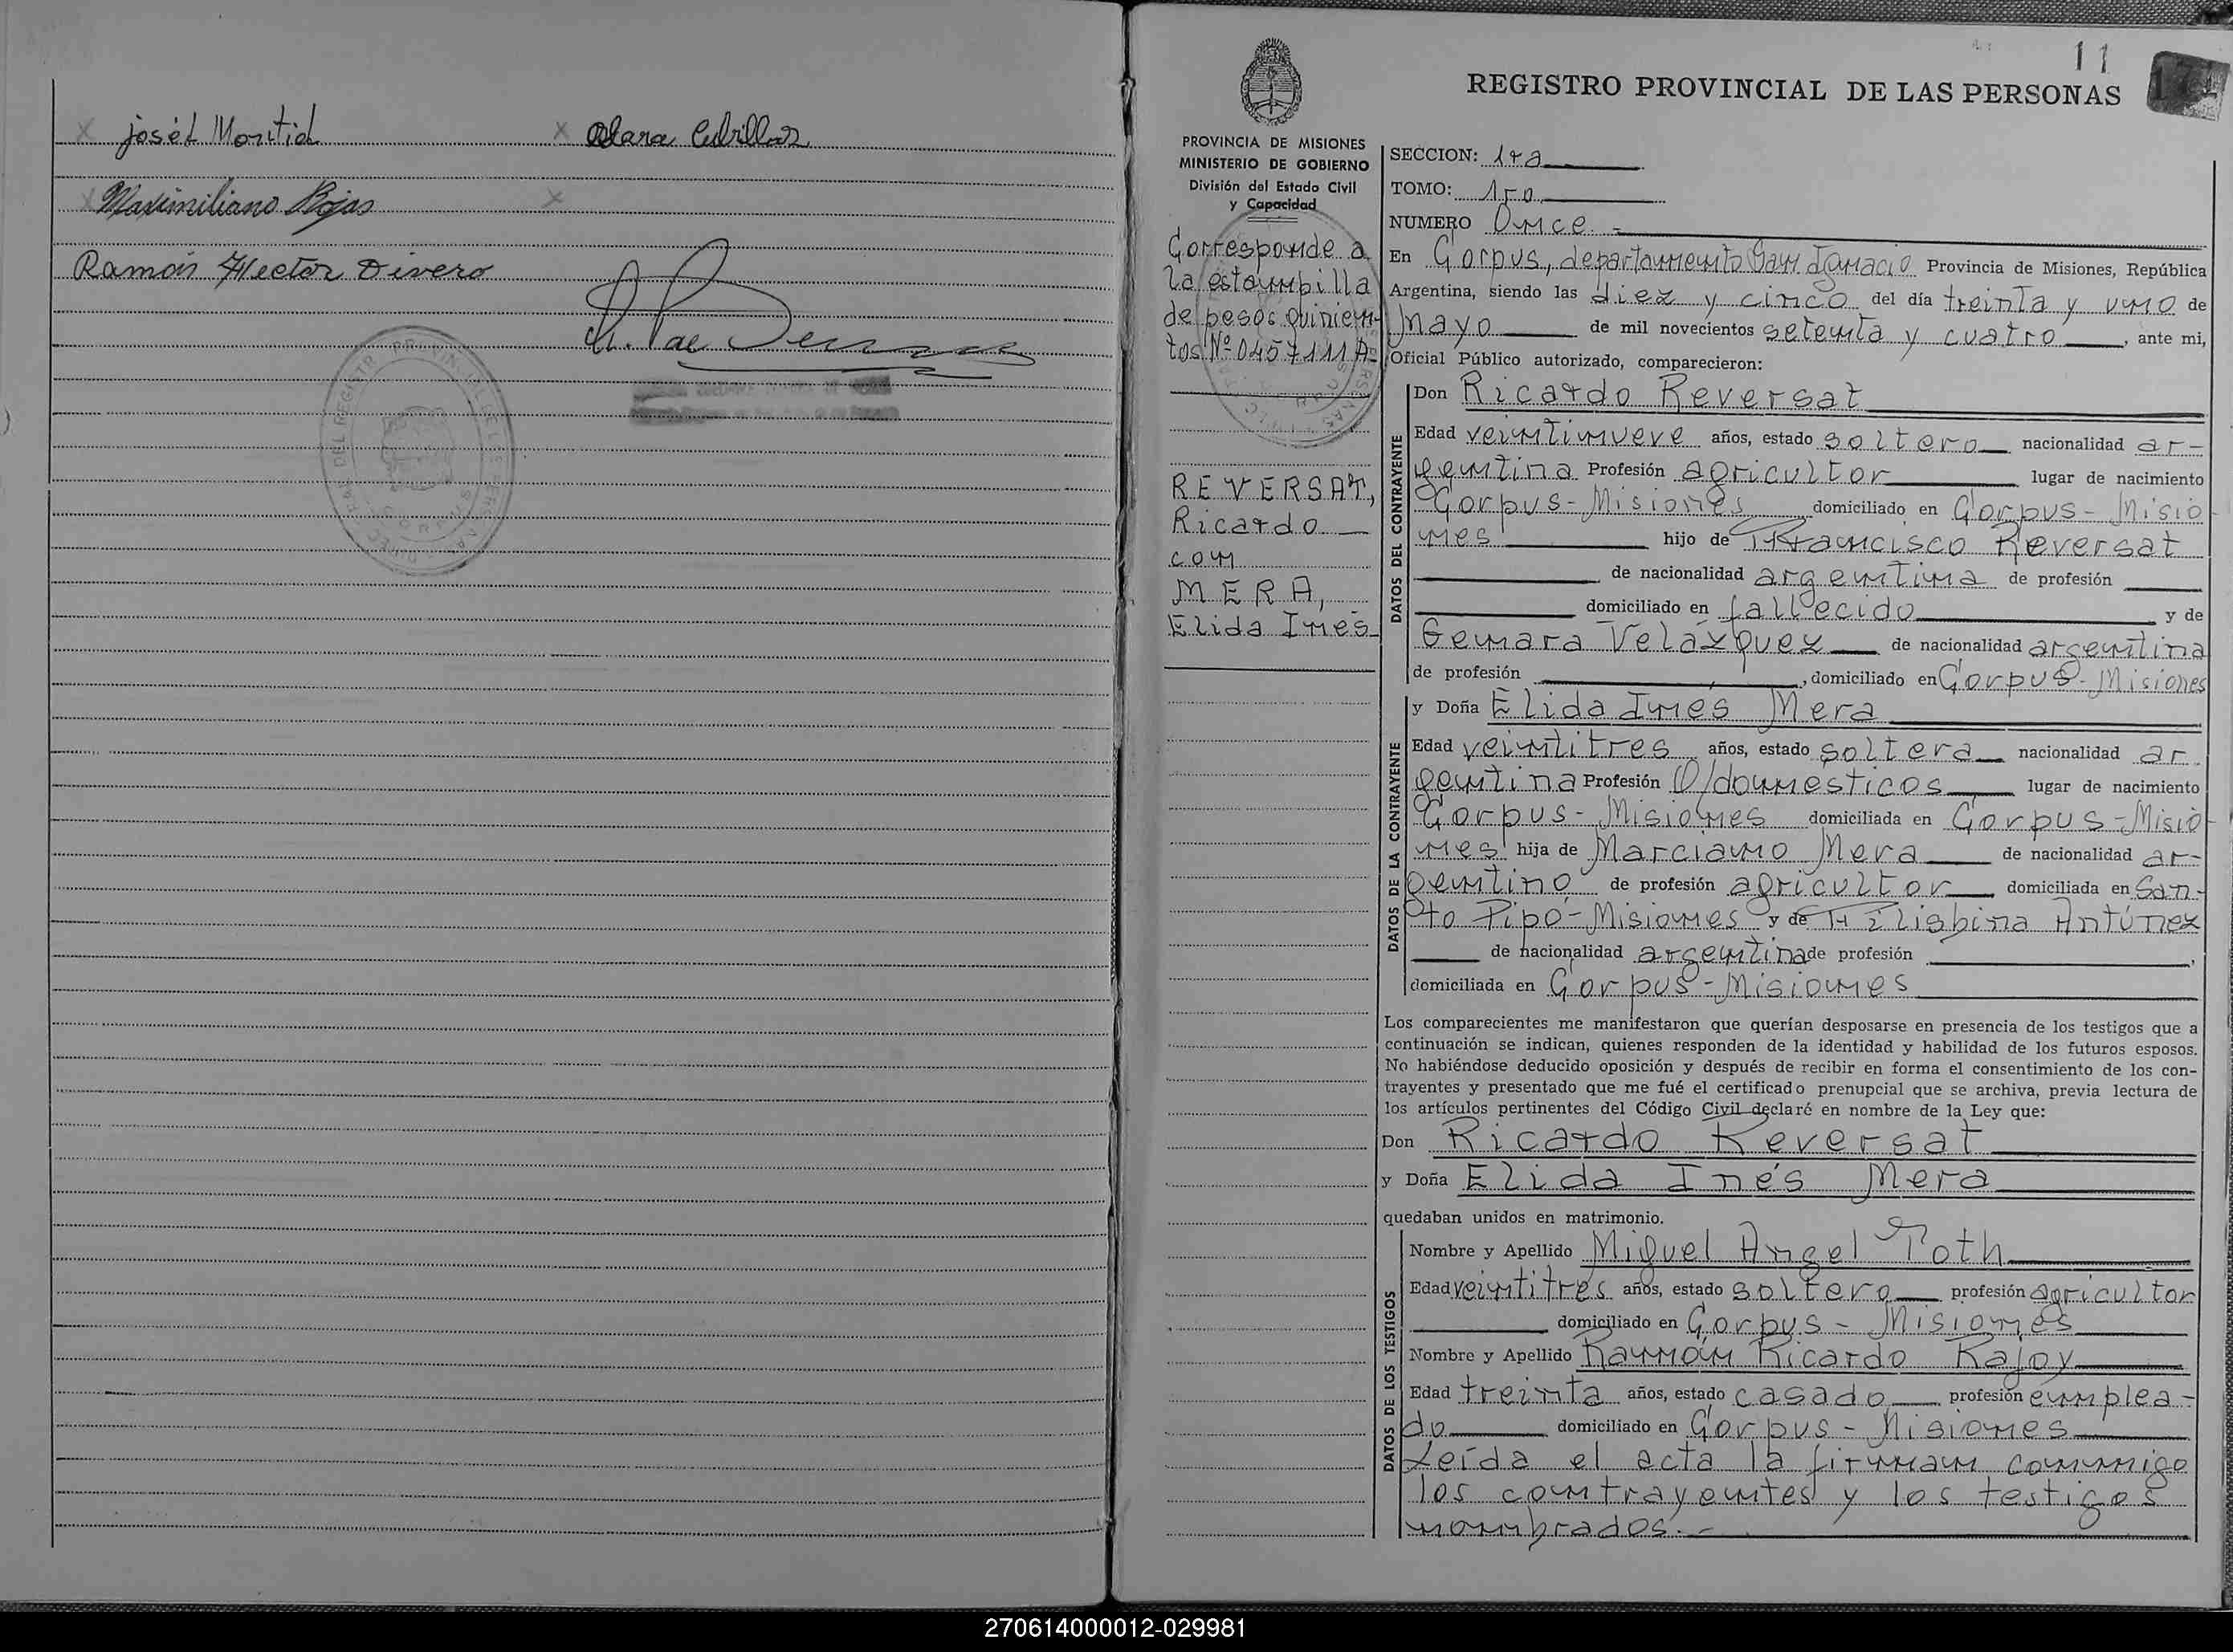 josét Montiel
Clara Cubillas
Maximiliano Rojas
Ramón Hector Divero
11
REGISTRO PROVINCIAL DE LAS PERSONAS
PROVINCIA DE MISIONES
MINISTERIO DE GOBIERNO
División del Estado Civil
y Capacidad
Corresponde a
la estampilla
de pesos quinien-
tos Nº 0457111 A-
REVERSAT,
Ricardo
con
MERA,
Elida Inés
SECCION: 1ra
TOMO: 1ro
NUMERO Once.-
En Corpus, departamento San Ignacio Provincia de Misiones, República
Argentina, siendo las diez y cinco del día treinta y uno de
Mayo de mil novecientos setenta y cuatro, ante mi,
Oficial Público autorizado, comparecieron:
DATOS DEL CONTRAYENTE
Don Ricardo Reversat
Edad veintinueve años, estado soltero nacionalidad ar-
gentina Profesión agricultor lugar de nacimiento
Corpus-Misiones domiciliado en Corpus-Misio-
nes hijo de Francisco Reversat
de nacionalidad argentina de profesión
domiciliado en fallecido y de
Genara Velázquez de nacionalidad argentina
de profesión , domiciliado en Corpus-Misiones
DATOS DE LA CONTRAYENTE
y Doña Elida Inés Mera
Edad veintitres años, estado soltera nacionalidad ar-
gentina Profesión Q/domesticos lugar de nacimiento
Corpus-Misiones domiciliada en Corpus-Misio-
nes hija de Marciano Mera de nacionalidad ar-
gentino de profesión agricultor domiciliada en San-
to Pipó-Misiones y de Filisbina Antúnez
de nacionalidad argentina de profesión ,
domiciliada en Corpus-Misiones
Los comparecientes me manifestaron que querían desposarse en presencia de los testigos que a
continuación se indican, quienes responden de la identidad y habilidad de los futuros esposos.
No habiéndose deducido oposición y después de recibir en forma el consentimiento de los con-
trayentes y presentado que me fué el certificado prenupcial que se archiva, previa lectura de
los artículos pertinentes del Código Civil declaré en nombre de la Ley que:
Don Ricardo Reversat
y Doña Elida Inés Mera
quedaban unidos en matrimonio.
DATOS DE LOS TESTIGOS
Nombre y Apellido Miguel Angel Toth
Edad veintitres años, estado soltero profesión agricultor
domiciliado en Corpus-Misiones
Nombre y Apellido Ramón Ricardo Rajoy
Edad treinta años, estado casado profesión emplea-
do domiciliado en Corpus-Misiones
Leída el acta la firman conmigo
los contrayentes y los testigos
nombrados.-
270614000012-029981